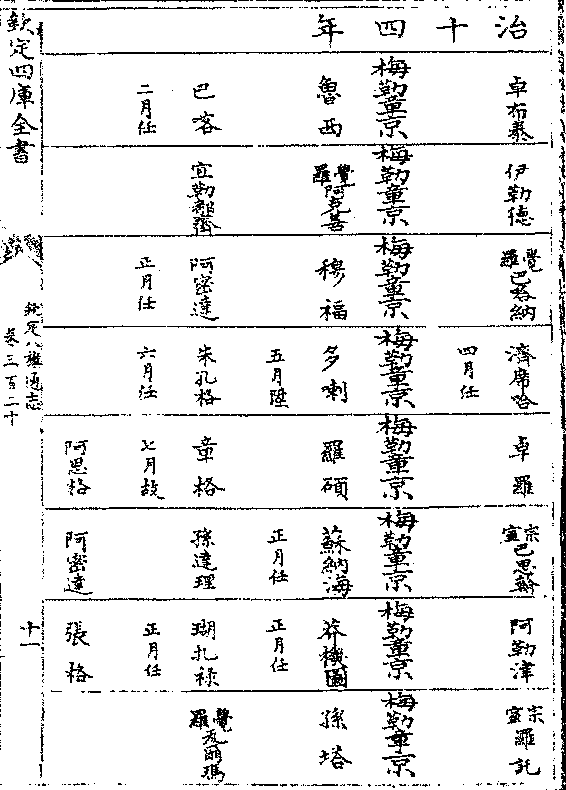 治十四年
卓布泰
梅勒章京
魯西
巴喀
二月任
伊勒德
梅勒章京
覺羅阿克善
宜勒都齊
覺羅巴哈納
梅勒章京
穆福
阿密達
正月任
濟席哈
四月任
梅勒章京
多喇
五月陞
朱孔格
六月任
卓羅
梅勒章京
羅碩
章格
七月故
阿思格
宗室巴思翰
梅勒章京
蘇納海
正月任
孫達理
阿密達
阿勒津
梅勒章京
莽機圖
正月任
瑚扎祿
正月任
張格
宗室羅託
梅勒章京
孫塔
覺羅瓦爾瑪
欽定四庫全書
欽定八旗通志
卷三百二十
十一